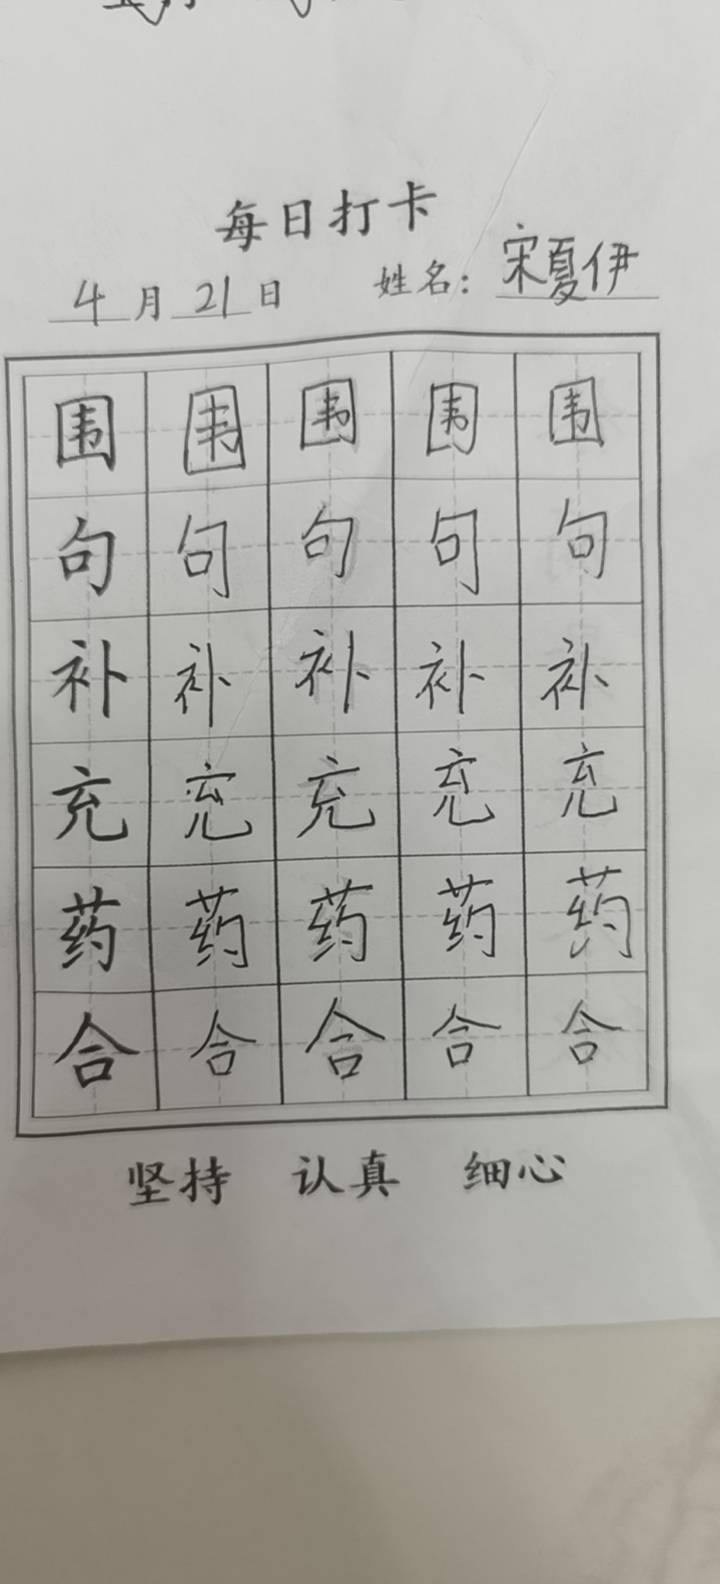 每日打卡
4月21日 姓名：宋夏伊
围围围围围
句句句句句
补补补补补
充充充充充
药药药药药
合合合合合
坚持 认真 细心